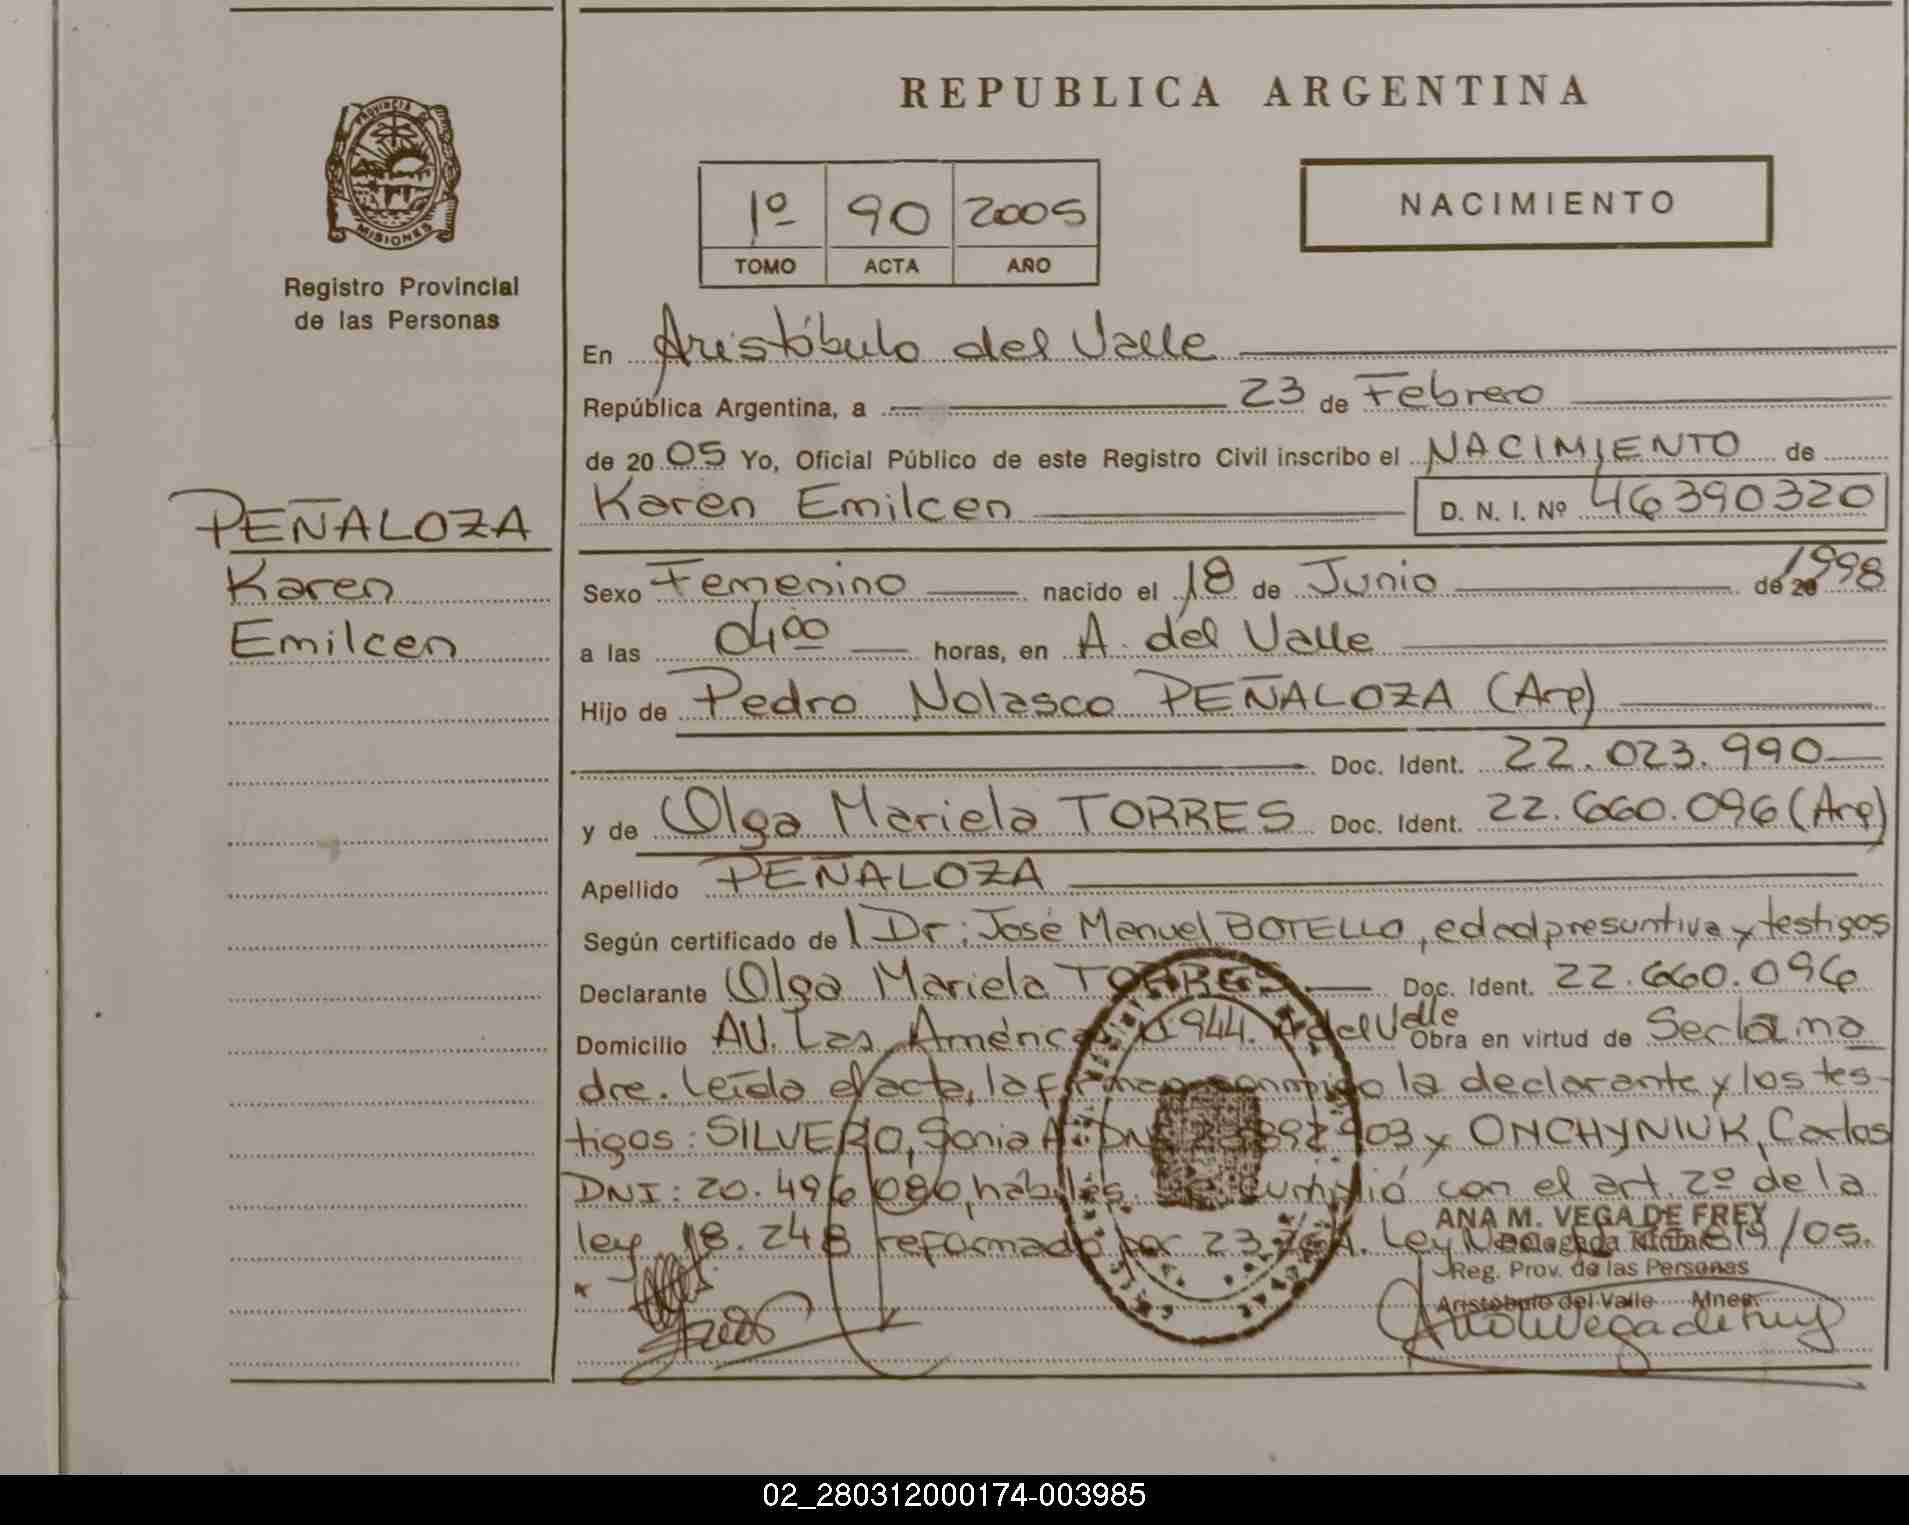 REPUBLICA ARGENTINA
PROVINCIA DE
MISIONES
Registro Provincial
de las Personas
1º 90 2005
TOMO ACTA AÑO
NACIMIENTO
PEÑALOZA
Karen
Emilcen
En Aristóbulo del Valle
República Argentina, a 23 de Febrero
de 20 05 Yo, Oficial Público de este Registro Civil inscribo el NACIMIENTO de
Karen Emilcen D. N. I. Nº 46390320
Sexo Femenino nacido el 18 de Junio de 20 1998
a las 04 00 horas, en A. del Valle
Hijo de Pedro Nolasco PEÑALOZA (Arg)
Doc. Ident. 22.023.990
y de Olga Mariela TORRES Doc. Ident. 22.660.096 (Arg)
Apellido PEÑALOZA
Según certificado de Dr: José Manuel BOTELLO, edad presuntiva y testigos
Declarante Olga Mariela TORRES Doc. Ident. 22.660.096
Domicilio AV. Las Américas 944. A del Valle Obra en virtud de Ser la ma
dre. Leída el acta, la firman conmigo la declarante y los tes-
tigos: SILVERO, Sonia A. DNI 903 y ONCHYNIUK, Carlos
DNI: 20.496.080, hábiles. Se cumplió con el art. 2º de la
ley 18.248 reformado por 23. Ley /05.
ANA M. VEGA DE FREY
Delegada Titular
Reg. Prov. de las Personas
Aristóbulo del Valle Mnes.
02_280312000174-003985